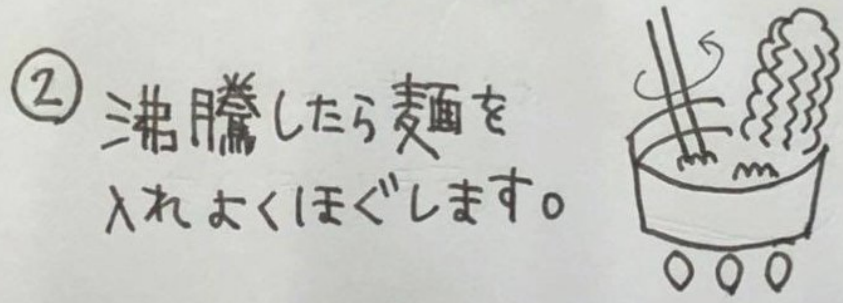 ② 沸騰したら麺を
入れよくほぐします。